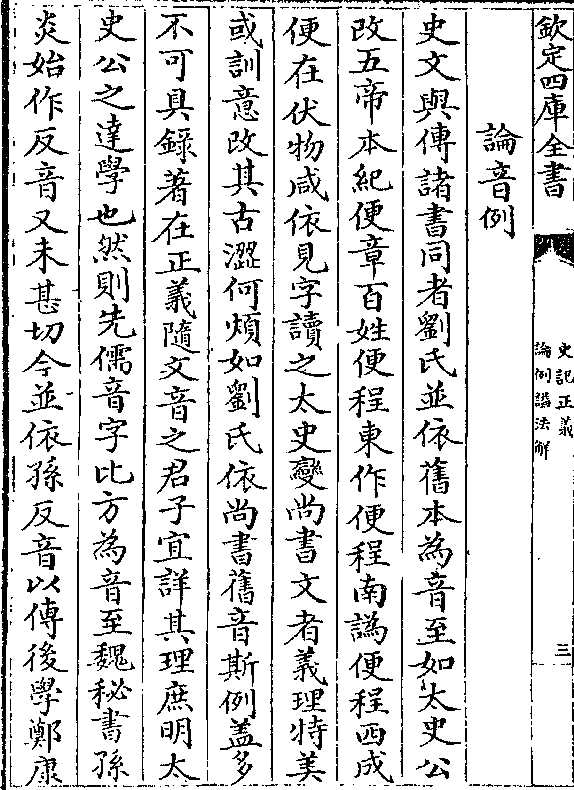 欽定四庫全書
史記正義
論例諡法解
三
論音例
史文與傳諸書同者劉氏並依舊本為音至如太史公
改五帝本紀便章百姓便程東作便程南譌便程西成
便在伏物咸依見字讀之太史變尚書文者義理特美
或訓意改其古澀何煩如劉氏依尚書舊音斯例蓋多
不可具錄著在正義隨文音之君子宜詳其理庶明太
史公之達學也然則先儒音字比方為音至魏秘書孫
炎始作反音又未甚切今並依孫反音以傳後學鄭康